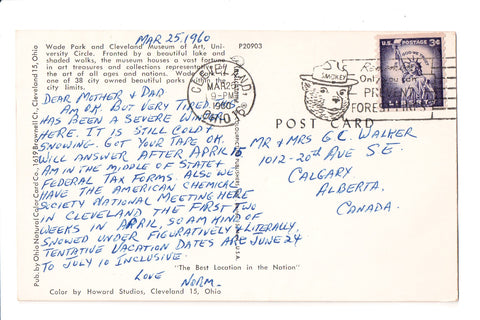 MAR 25, 1960
Wade Park and Cleveland Museum of Art, Uni-
versity Circle. Fronted by a beautiful lake and
shaded walks, the museum houses a vast fortune
in art treasures and collections representative of
the art of all ages and nations. Wade Park is
one of 38 city owned beautiful parks within the
city limits.
P20903
DEAR MOTHER & DAD
AM OK. BUT VERY TIRED. THIS
HAS BEEN A SEVERE WINTER
HERE. IT IS STILL COLD &
SNOWING. GOT YOUR TAPE OK.
WILL ANSWER AFTER APRIL 15.
AM IN THE MIDDLE OF STATE &
FEDERAL TAX FORMS. ALSO WE
HAVE THE AMERICAN CHEMICAL
SOCIETY NATIONAL MEETING HERE
IN CLEVELAND THE FIRST TWO
WEEKS IN APRIL, SO AM KIND OF
SNOWED UNDER FIGURATIVELY & LITERALLY.
TENTATIVE VACATION DATES ARE JUNE 24
TO JULY 10 INCLUSIVE.
LOVE
NORM.
"The Best Location in the Nation"
Color by Howard Studios, Cleveland 15, Ohio
Pub. by Ohio Natural Color Card Co., 1619 Brownell Ct., Cleveland 15, Ohio
CLEVELAND,
MAR 26
9-PM
1960
OHIO
SMOKEY
Only you can
PREVENT
FOREST FIRES
U.S. POSTAGE 3¢
IN GOD WE TRUST
LIBERTY
POST CARD
MR & MRS G.C. WALKER
1012-20th AVE S.E.
CALGARY
ALBERTA.
CANADA.